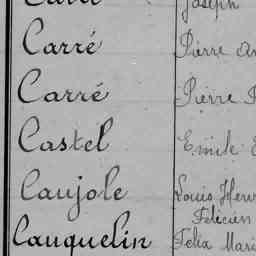 Joseph
Carré Pierre
Carré Pierre
Castel Emile
Caujole Louis Henri
Félicien
Cauquelin Félix Mari